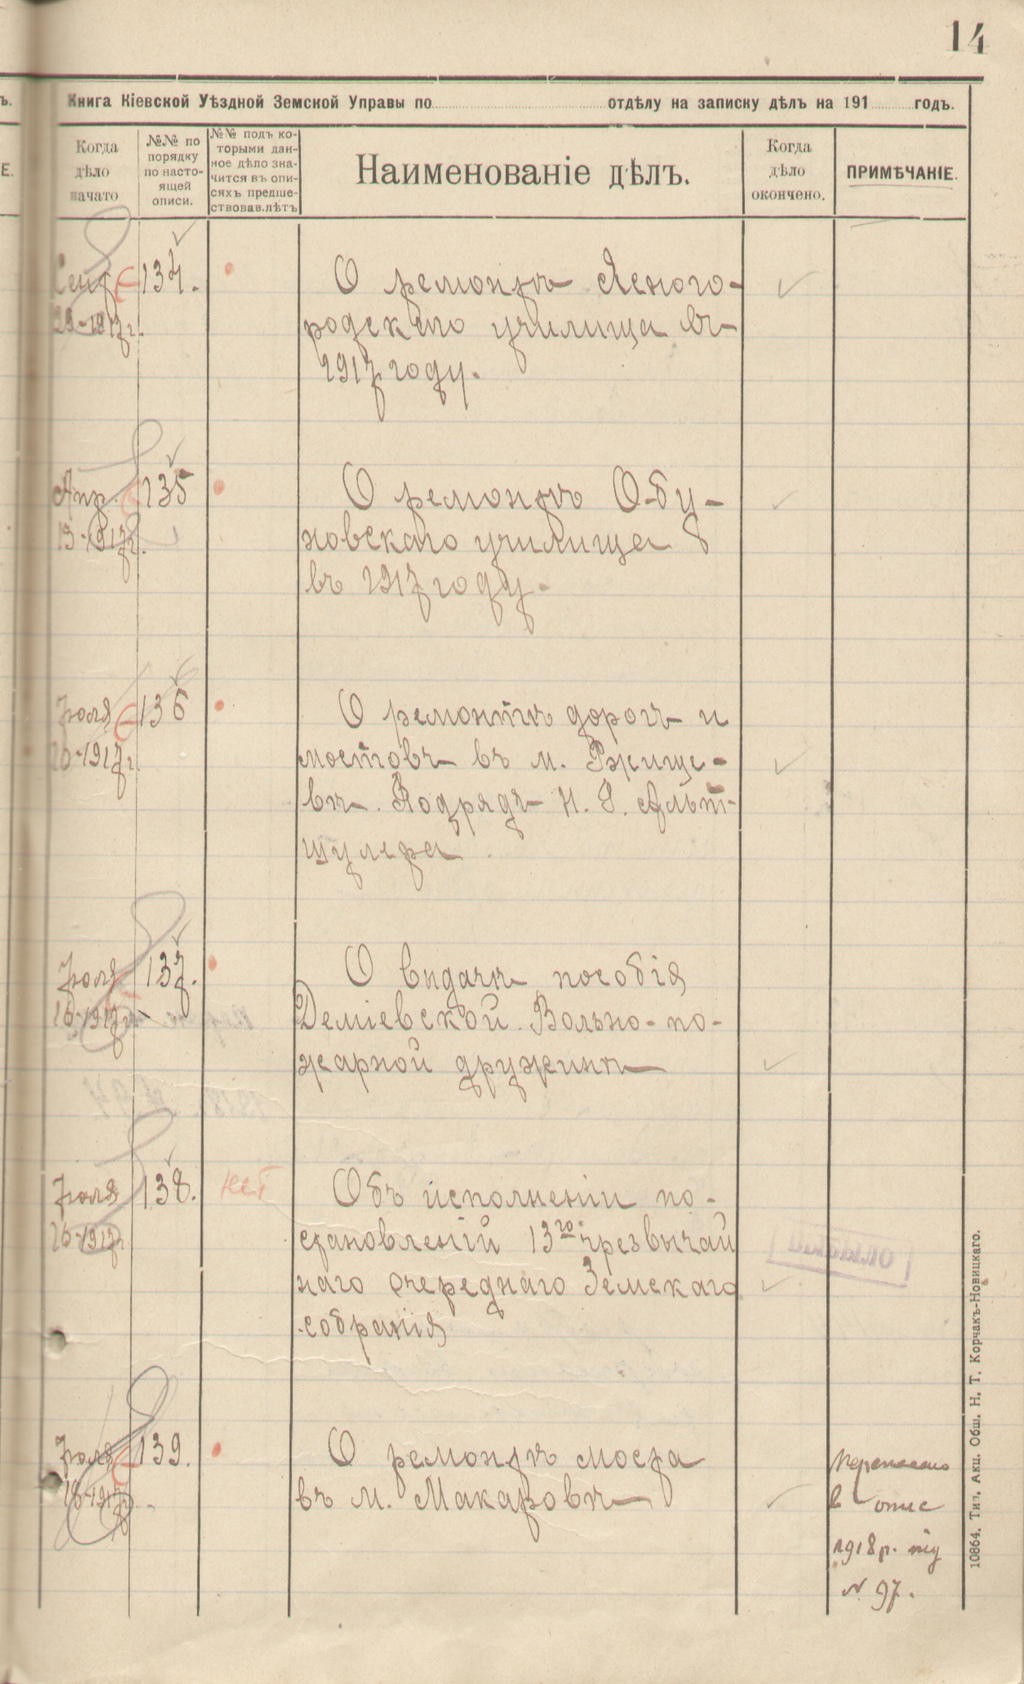 14
Книга Кіевской Уѣздной Земской Управы по отдѣлу на записку дѣлъ на 191 годъ.
Когда дѣло начато
№№ по порядку по насто- ящей описи.
№№ подъ ко- торыми дан- ное дѣло зна- чится въ опи- сяхъ предше- ствовав.лѣтъ
Наименованіе дѣлъ.
Когда дѣло окончено.
ПРИМѢЧАНІЕ.
134.
О ремонтѣ Ясного-
родскаго училища въ
1917 году.
Апр. 135
О ремонтѣ Обу-
13-1917г.
ховскаго училища
въ 1917 году.
Іюля 136
О ремонтѣ дорогъ и
26-1917г.
мостовъ въ м. Ржище-
вѣ. Подрядъ Н. Г. Альт-
шулера
Іюля 137.
О выдачѣ пособія
26-1917г.
Деміевской Вольно-по-
жарной дружинѣ
Іюля 138. нет
Объ исполненіи по-
26-1917г.
становленій 13го чрезвычай
наго очереднаго Земскаго
собранія
Іюля 139.
О ремонтѣ моста
18-1917г.
въ м. Макаровѣ
Перенесено
в опис
1918 р. під
N 97.
10864. Тип. Акц. Общ. Н. Т. Корчакъ-Новицкаго.